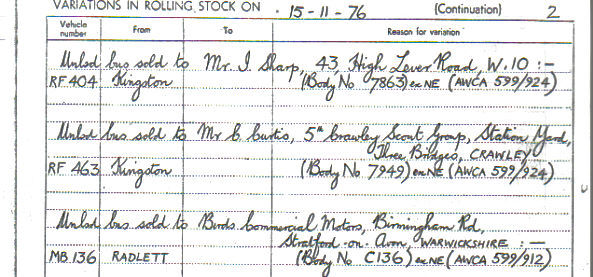 VARIATIONS IN ROLLING STOCK ON 15-11-76 (Continuation) 2
Vehicle number From To Reason for variation
Unlsd bus sold to Mr. I. Sharp, 43, High Lever Road, W.10 :-
RF 404 Kingston (Body No 7863) ex NE (AWCA 599/924)
Unlsd bus sold to Mr C. Curtis, 5th Crawley Scout Group, Station Yard,
Three Bridges, CRAWLEY
RF 463 Kingston (Body No 7949) ex NE (AWCA 599/924)
Unlsd bus sold to Birds Commercial Motors, Birmingham Rd,
Stratford-on-Avon, WARWICKSHIRE :-
MB.136 RADLETT (Body No C136) ex NE (AWCA 599/912)